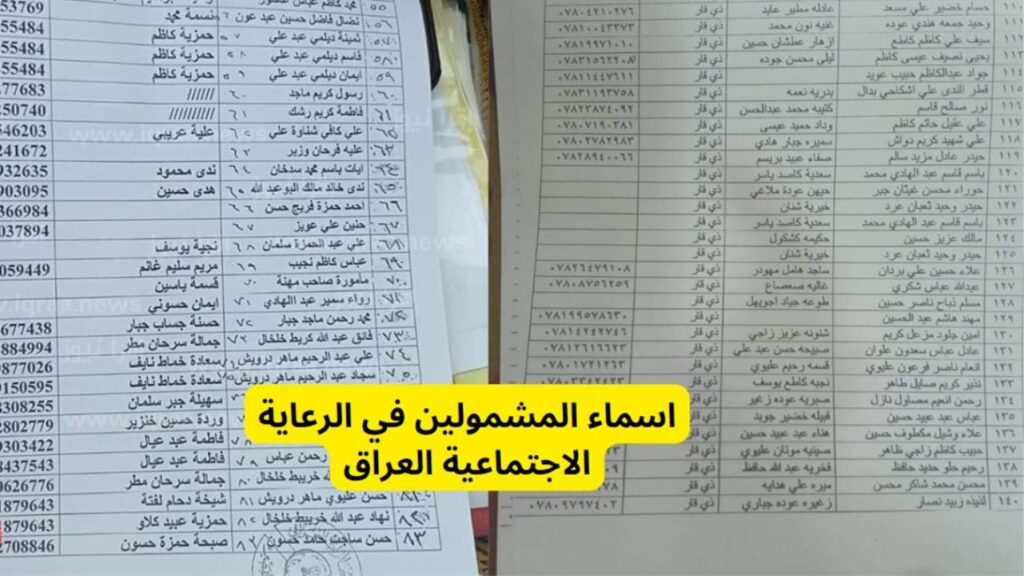 محمد كاظم عباس ٥٥
53769
نضال فاضل حسين عبد عون ٥٦
نسمة محمد
ثمينة ديلمي عبد علي ٥٧
حمزية كاظم
55484
قاسم ديلمي عبد علي ٥٨
حمزية كاظم
55484
ايمان ديلمي عبد علي ٥٩
حمزية كاظم
55484
رسول كريم ماجد ٦٠
//////
77683
فاطمة كريم رشك ٦١
//////////
250740
علي كافي شناوة علي
علية عريبي
546203
عليه فرحان وزير ٦٣
241672
ايات باسم محمد سدخان ٦٤
ندى محمود
932635
ندى خالد مالك البوعبد الله ٦٥
هدى حسين
903095
احمد حمزة فريج حسن ٦٦
366984
حنين علي عويز ٦٧
037894
علي عبد الحمزة سلمان ٦٨
نجية يوسف
عباس كاظم نجيب ٦٩
مريم سليم غانم
059449
مامورة صاحب مهنة ٧٠
قسمة ياسين
رواء سمير عبد الهادي ٧١
ايمان حسوني
محمد رحمن ماجد جبار ٧٢
حسنة جساب جبار
677438
فائق عبد الله كريط خلخال ٧٣
جمالة سرحان مطر
884994
علي عبد الرحيم ماهر درويش ٧٤
سعادة خماط نايف
9877026
سجاد عبد الرحيم ماهر درويش ٧٥
سعادة خماط نايف
9150595
سهيلة جبر سلمان
8308255
وردة حسين خنزير
2802779
فاطمة عبد عيال
9303422
رحمن عباس
فاطمة عبد عيال
8437543
خريبط خلخال
جمالة سرحان مطر
0626776
حسن عليوي ماهر درويش ٨١
شيخة دحام لفتة
1879643
نهاد عبد الله خريبط خلخال ٨٢
حمزية عبيد كلاو
1879643
حسن ساجت حامد حسون ٨٣
صبحة حمزة حسون
2708846
١١٠ حسام خضير علي مسعد عادله مطير عايد ذي قار ٠٧٨٠٤٢١٠٢٧٦
١١١ وحيد جمعه هندي عوده غفيه نون محمد ذي قار ٠٧٨١٠٠٤٣٣٧٣
سيف علي كاظم كاطع ازهار عطشان حسين ذي قار ٠٧٨١٩٩٧١٠١٠
١١٣ يحيى نصيف عيسى كاظم ليلى محسن جوده ذي قار ٠٧٨٣١٥٦٢٢٠٨
١١٤ جواد عبدالكاظم حبيب عويد ذي قار ٠٧٨١١٤٤٧٦١١
١١٥ قطر الندى علي اشكاحي بدال بدريه نعمه ذي قار ٠٧٨٣١١٩٣٧٥٨
١١٦ نور صالح قاسم كتيبه محمد عبدالحسن ذي قار ٠٧٨٢٣٨٧٤٠٩٢
١١٧ علي عقيل حاتم كاظم وداد حميد عيسى ذي قار ٠٧٨٠٧١٩٠٣٨١
١١٨ علي شهيد كريم دواش سميره جبار هادي ذي قار ٠٧٨٠٢٧٨٢٩٨٣
١١٩ حيدر عادل مزيد سالم صفاء عبيد بريسم ذي قار ٠٧٨٢٨٩٤٠٠٦٦
١٢٠ باسم قاسم عبد الهادي محمد سعدية كاصد ياسر ذي قار
١٢١ حوراء محسن غيثان جبر جيهن عودة ملاغي ذي قار
١٢٢ حيدر وحيد ثعبان عرد خيرية شنان ذي قار
١٢٣ باسم قاسم عبد الهادي محمد سعدية كاصد ياسر ذي قار
١٢٤ مالك عزيز حسين حكيمه كشكول ذي قار
١٢٥ حيدر وحيد ثعبان عرد خيرية شنان ذي قار
١٢٦ علاء حسين علي بردان ساجد هامل مهودر ذي قار ٠٧٨٢٦٤٧٩١٠٨
١٢٧ عبدالله عباس شكري غالية صعصاع ذي قار ٠٧٨٠٨٧٥٦٢٥٩
١٢٨ مسلم ذباح ناصر حسين طوعه جياد اجويهل ذي قار
١٢٩ مهند هاشم عبد الحسين ذي قار ٠٧٨١٩٩٥٧٨٦٣٠
١٣٠ امين جلود مزعل كريم شنونه عزيز زاجي ذي قار ٠٧٨١٤٢٤٢٧٤٦
١٣١ عادل عباس سعدون علوان صبيحه حسن عبد علي ذي قار ٠٧٨١٢٦١٦٦٢٣
١٣٢ انعام ناصر فرعون عليوي قسمه رحيم عليوي ذي قار ٠٧٨٠١٧٢١٢٦٣
١٣٣ نذير كريم صايل طاهر نجيه كاطع يوسف ذي قار ٠٧٨٠٣٣٤٢٤٢٣
١٣٤ رحمن انعيم مصاول نازل صبريه عوده زغير ذي قار
١٣٥ عباس عبد عبيد حسين قبيله خضير جويد ذي قار
١٣٦ علاء وشيل مكطوف حسين هناء عبد عبيد حسين ذي قار
١٣٧ حبيب كاظم زاجي ظاهر صينيه موتان عليوي ذي قار
١٣٨ رحيم حلو حديد حافظ فخرية عبد الله حافظ ذي قار
١٣٩ محسن محمد شاكر محسن ميره علي هدايه ذي قار
١٤٠ لذيذه زبيد نصار زغيره عوده جباري ذي قار ٠٧٨٠٩٧٩٧٤٠٢
اسماء المشمولين في الرعاية
الاجتماعية العراق